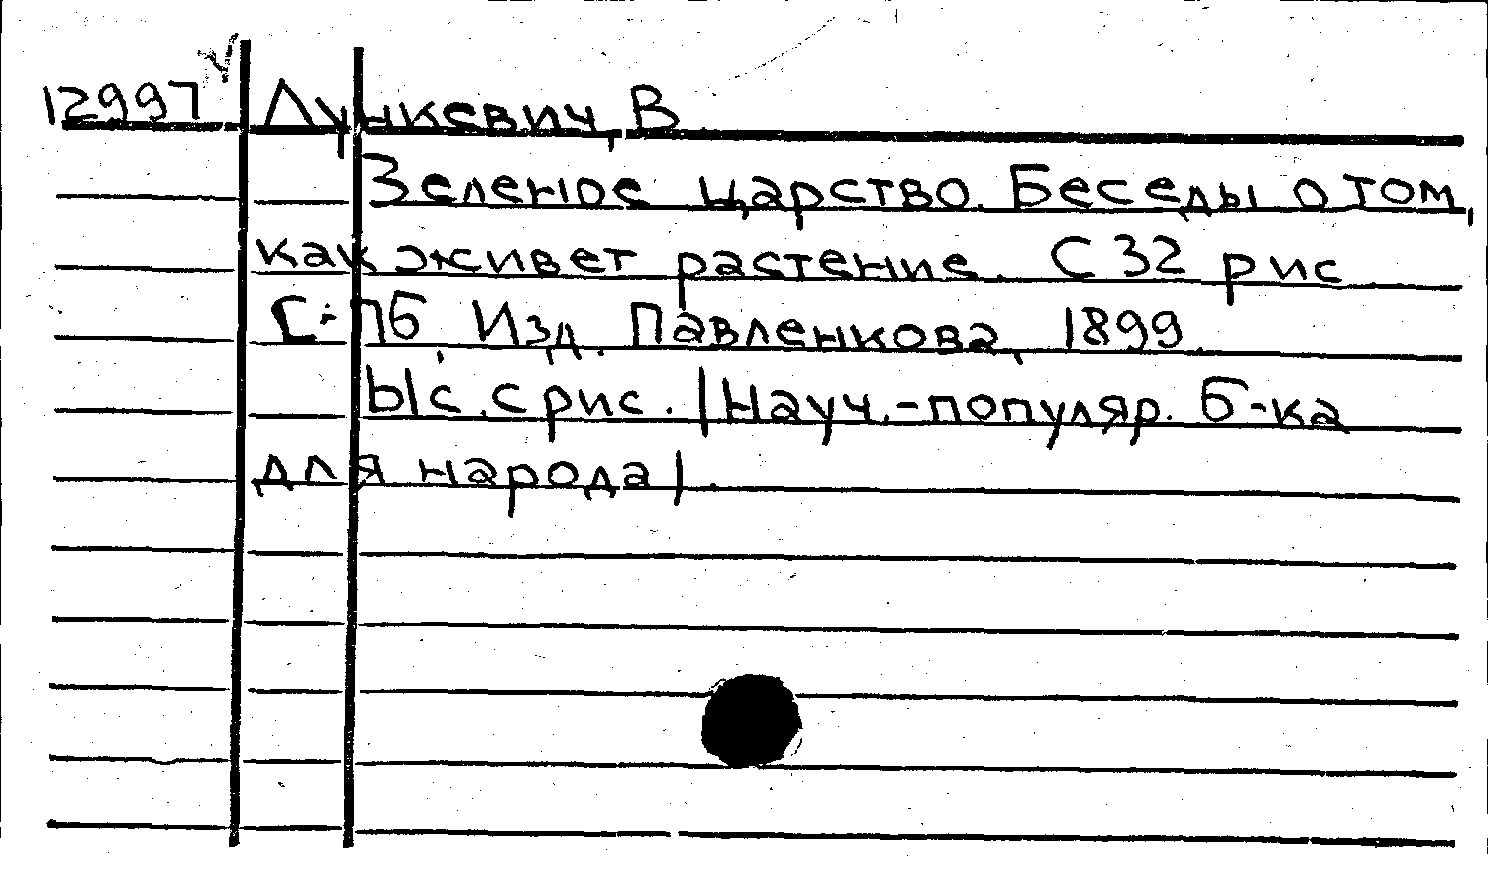 12997 Лункевич, В.
Зеленое царство. Беседы о том,
как живет растение. С 32 рис
С-Пб, Изд. Павленкова, 1899.
с. с рис. |Науч.-популяр. б-ка
для народа|.